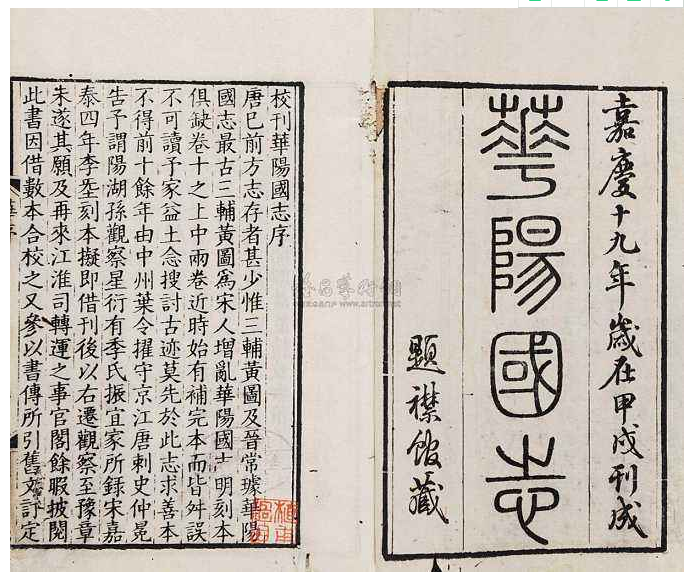 嘉慶十九年歲在甲戌刊成
華陽國志
題襟館藏
校刊華陽國志序
唐已前方志存者甚少惟三輔黃圖及晉常璩華陽
國志最古三輔黃圖為宋人增亂華陽國志明刻本
俱缺卷十之上中兩卷近時始有補完本而皆舛誤
不可讀予家益土念搜討古迹莫先於此志求善本
不得前十餘年由中州葉令擢守京江唐刺史仲冕
告予謂陽湖孫觀察星衍有季氏振宜家所錄宋嘉
泰四年李𡌴刻本擬即借刊後以右遷觀察至豫章
未遂其願及再來江淮司轉運之事官閣餘暇披閱
此書因借數本合校之又參以書傳所引舊文訂定